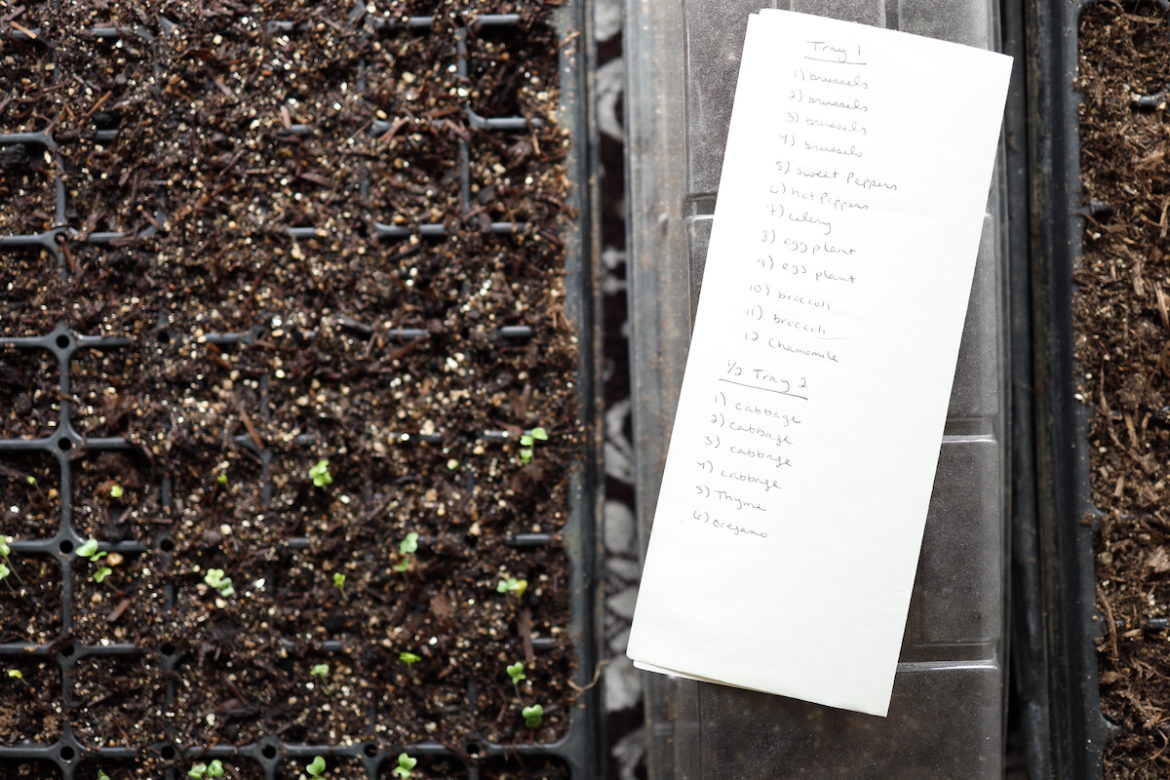 Tray 1
1) brussels
2) brussels
3) brussels
4) brussels
5) sweet Peppers
6) hot Peppers
7) celery
8) eggplant
9) egg plant
10) broccoli
11) broccoli
12 Chamomile
1/2 Tray 2
1) cabbage
2) cabbage
3) cabbage
4) cabbage
5) Thyme
6) oregano